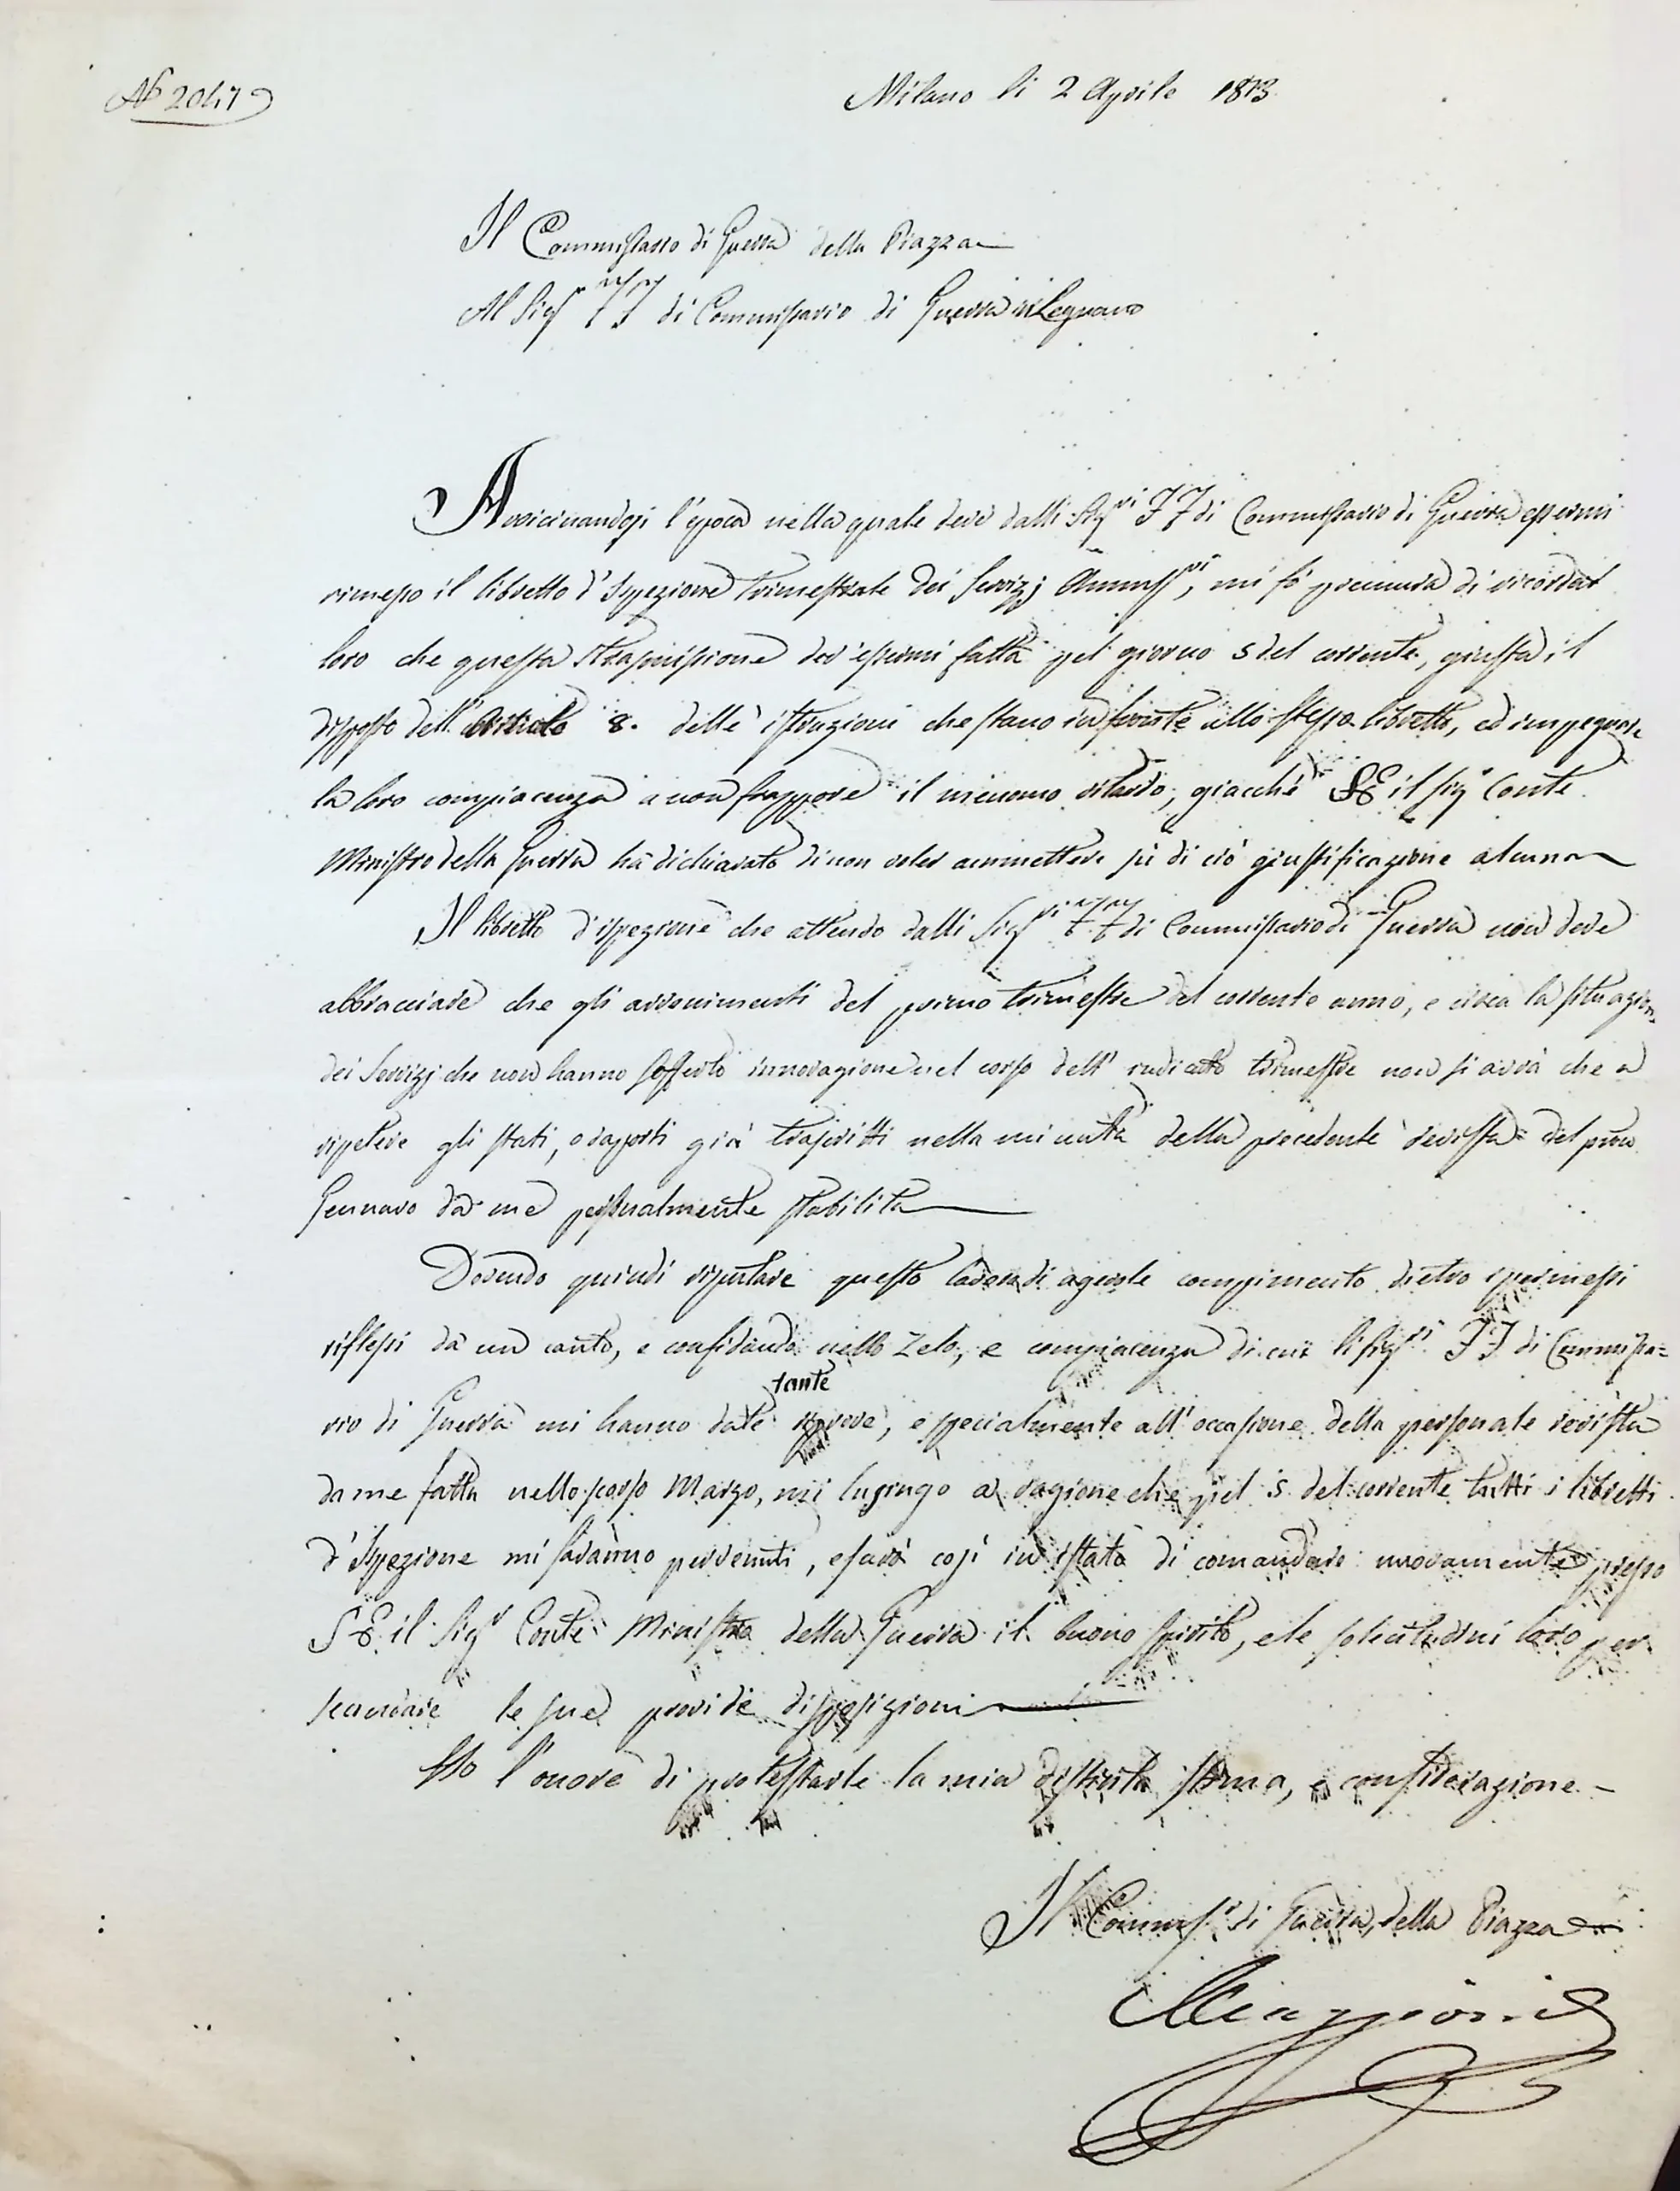 N.° 2047
Milano li 2 Aprile 1813
Il Commissario di Guerra della Piazza
Al Sig.r ff di Commissario di Guerra in Legnano
Avvicinandosi l'epoca nella quale deve dalli Sig.ri FF di Commissario di Guerra essermi
rimesso il libretto d'Ispezione trimestrale dei Servizj Ammss.vi, mi fò premura di ricordar
loro che questa trasmissione dev'essermi fatta pel giorno 5 del corrente, giusta il
disposto dell'Articolo 8. delle istruzioni che stano in fronte allo stesso libretto, ed impegnare
la loro compiacenza a non frappore il menomo ritardo, giacchè S.E. il Sig.r Conte
Ministro della Guerra hà dichiarato di non voler ammettere sù di ciò giustificazione alcuna
Il libretto d'ispezione che attendo dalli Sig.ri ff di Commissario di Guerra non deve
abbracciare che gli avvenimenti del primo trimestre del corrente anno, e circa la situazione
dei Servizj che non hanno sofferto innovazione nel corso dell'indicato trimestre non si avrà che a
ripetere gli stati, e rapporti già trascritti nella minuta della precedente rivista del primo
Gennaro da me personalmente stabilita
Dovendo quindi risultare questo lavoro di agevole compimento dietro i permessi
riflessi da un canto, e confidando nello Zelo, e compiacenza di cui li Sig.ri FF di Commissa=
rio di Guerra mi hanno date tante riprove, e specialmente all'occasione della personale rivista
da me fatta nello scorso Marzo, mi lusingo a ragione che pel 5 del corrente tutti i libretti
d'Ispezione mi saranno pervenuti, e sarò così in istato di comandare nuovamente presso
S.E. il Sig.r Conte Ministro della Guerra il buono spirito, e le solicitudini loro per
secondare le sue provide disposizioni
Ho l'onore di protestarle la mia distinta stima, e considerazione
Il Commiss.o di Guerra della Piazza